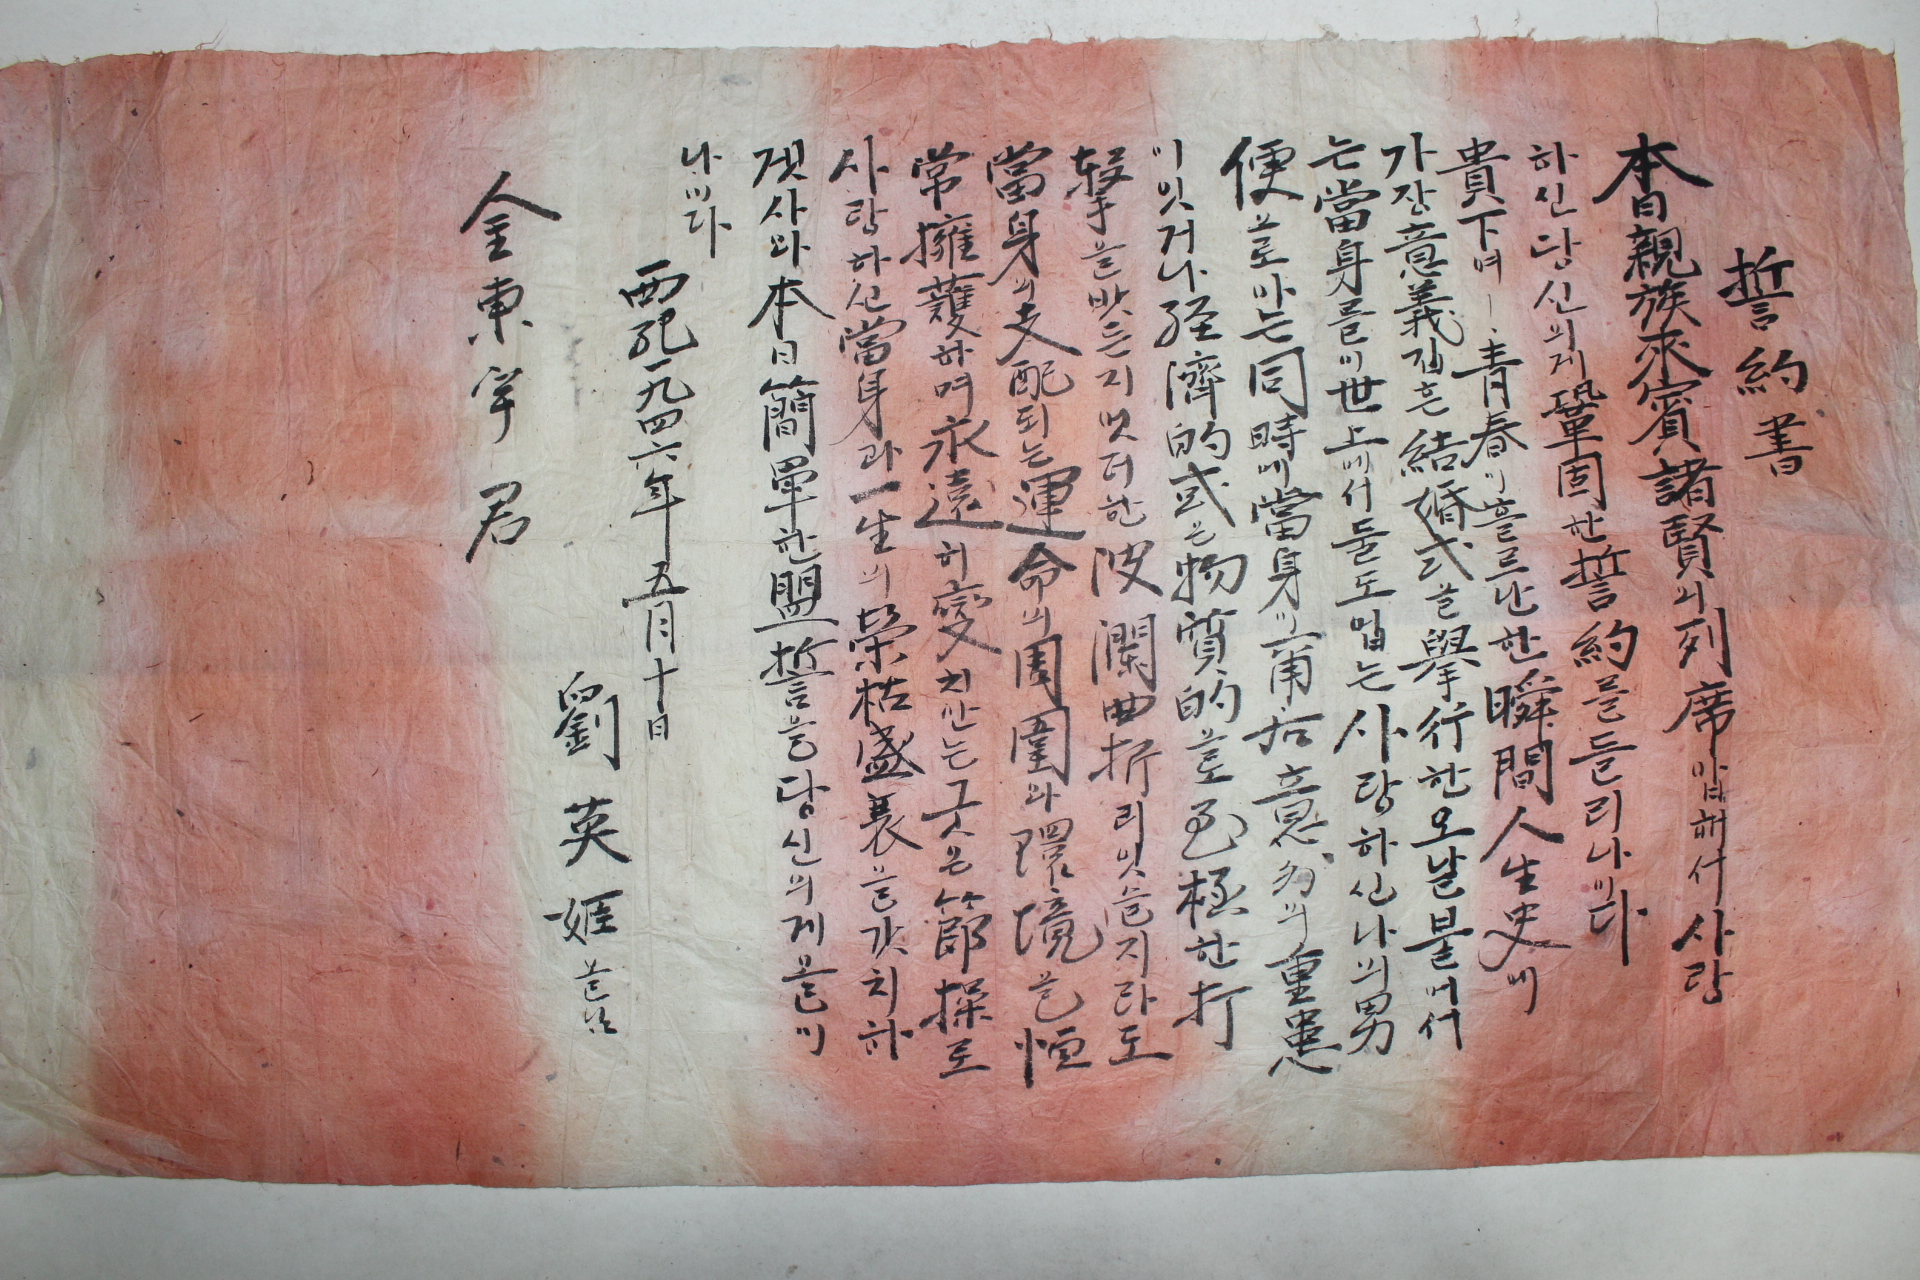 誓約書
本日親族來賓諸賢의列席아래서사랑
하신당신의게鞏固한誓約을들리나이다
貴下여ㅣ靑春이흘르난한瞬間人生史에
가장意義깁흔結婚式을擧行한오날불어서
는當身를이世上에서둘도업는사랑하신나의男
便으로아는同時에當身이 意 의重患
이잇거나經濟的或은物質的으로至極한打
擊을밧든지엇더한波瀾曲折리잇을지라도
當身의支配되는運命의周圍와環境을恒
常擁護하며永遠히變치안는굿은節操로
사랑하신當身과一生의榮枯盛衰을갓치하
겟사와本日簡單한盟誓을당신의게올이
나이다
西紀一九四六年五月十日
劉英姬
金東宇君